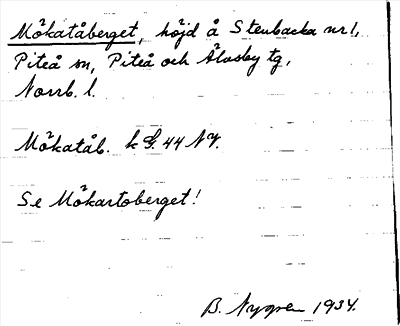 Mökatåberget, höjd å Stenbacka nr 1,
Piteå sn, Piteå och Älvsby tg,
Norrb. l.
Mökatåb. k G. 44 NV.
Se Mökartoberget!
B. Nygren 1934.